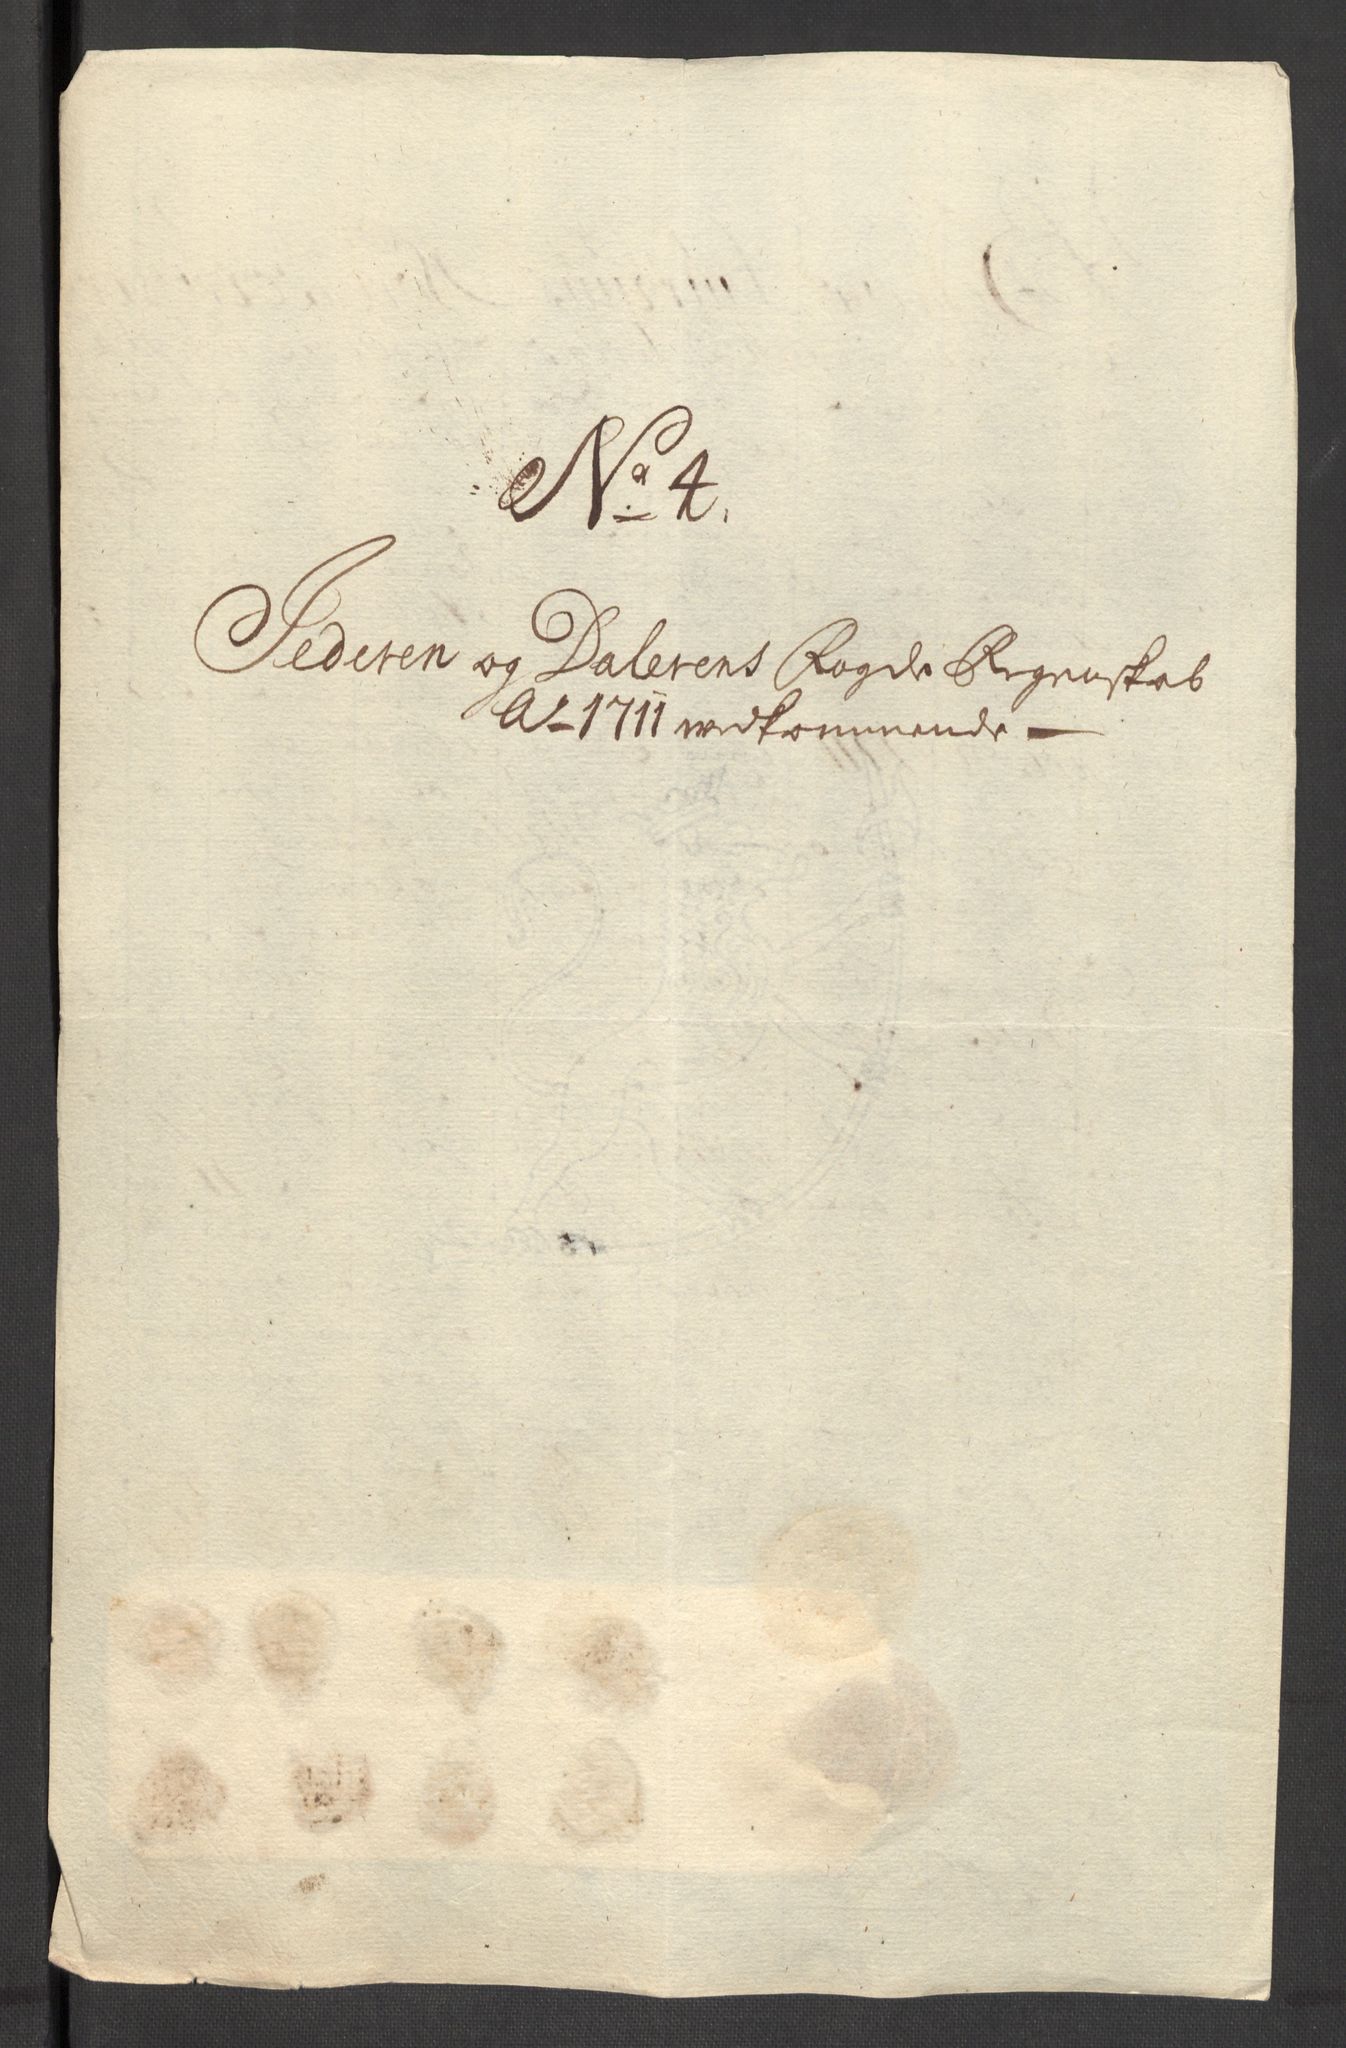 No 4.
Jederen og Dalerens Fogde Regenskab
Ao 1711 vedkommende —